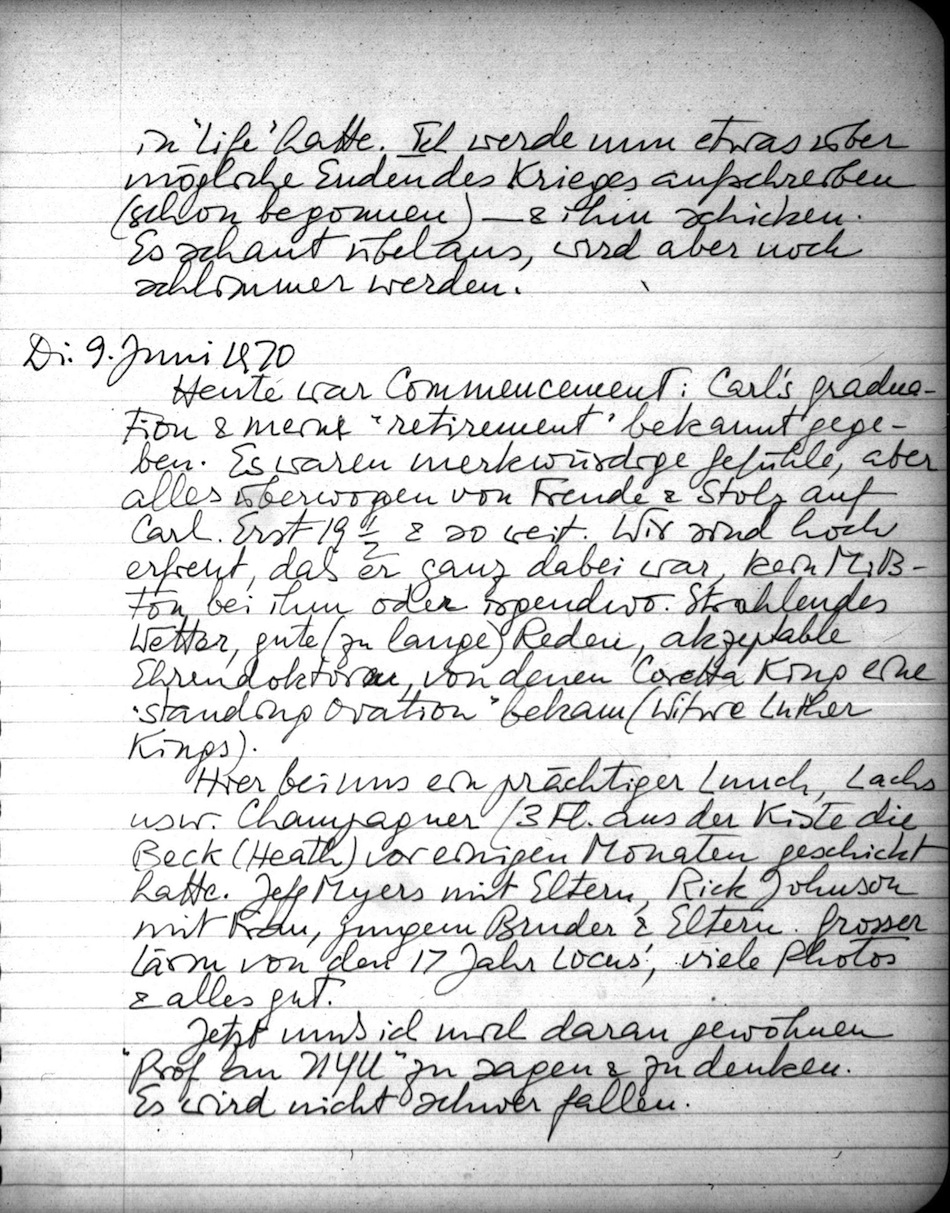 in 'Life' hatte. Ich werde nun etwas über
mögliche Enden des Krieges aufschreiben
(schon begonnen) — & ihm schicken.
Es schaut übel aus, wird aber noch
schlimmer werden.
Di. 9. Juni 1970
Heute war Commencement: Carl's gradua-
tion & meine "retirement" bekannt gege-
ben. Es waren merkwürdige Gefühle, aber
alles überwogen von Freude & Stolz auf
Carl. Erst 19 1/2 & so weit. Wir sind hoch
erfreut, daß er ganz dabei war, kein
ton bei ihm oder irgendwo. Strahlendes
Wetter, gute (zu lange) Reden, akzeptable
Ehrendoktoren, von denen Coretta King eine
"standing Ovation" bekam (Witwe Luther
Kings).
Hier bei uns ein prächtiger Lunch, Lachs
usw. Champagner (3 Fl. aus der Kiste die
Beck (Heath) vor einigen Monaten geschickt
hatte. Jeff Myers mit Eltern, Rick Johnson
mit Frau, jungem Bruder & Eltern. Grosser
Lärm von den 17 Jahr Locus', viele Photos
& alles gut.
Jetzt muß ich mich daran gewöhnen
"Prof an NYU" zu sagen & zu denken.
Es wird nicht schwer fallen.